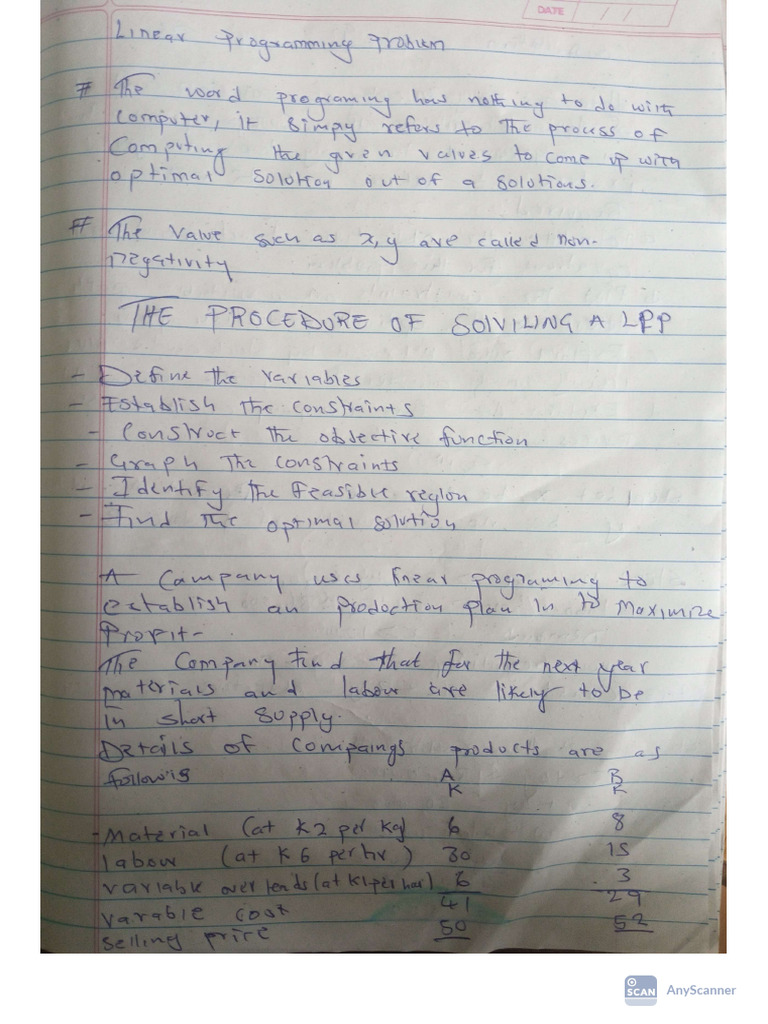 DATE / /
Linear Programming Problem
# The word programing has nothing to do with
computer, it simpy refers to the process of
Computing the given values to come up with
optimal solution out of a solutions.
# The value such as x, y are called non-
negativity
THE PROCEDURE OF SOLVILING A LPP
- Define the variables
- Establish the constraints
- Construct the objective function
- Graph the constraints
- Identify the feasible region
- Find the optimal solution
A Campany uses linear programing to
establish an production plan in to maximize
Propit-
The Company find that for the next year
materials and labour are likely to be
in short supply.
Details of compaings products are as
follows A B
K K
- Material (at K2 per kg) 6 8
labour (at K 6 per hr) 30 15
variable over lends (at K1 per hour) 6 3
varable cost 41 29
selling price 50 52
SCAN AnyScanner